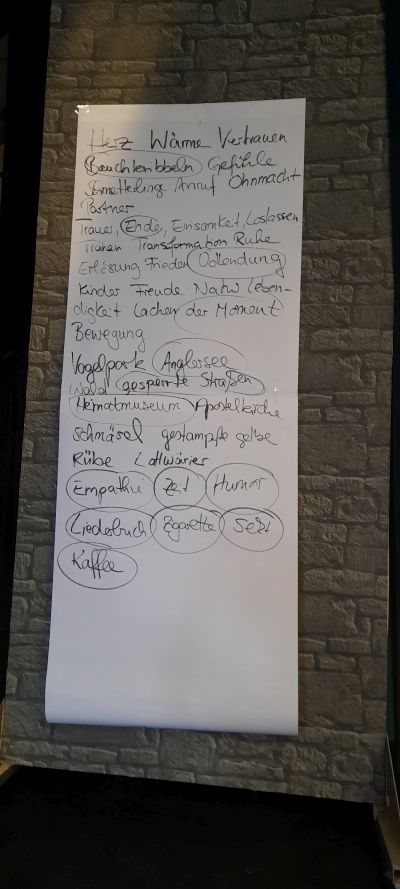 Herz Wärme Vertrauen
Bauchkribbeln Gefühle
Schmetterlinge Anruf Ohnmacht
Partner
Trauer, Ende, Einsamkeit Loslassen
Tränen Transformation Ruhe
Erlösung Frieden Vollendung
Kinder Freude Natur Leben-
digkeit Lachen der Moment
Bewegung
Vogelpark Anglersee
Wald gesperrte Straßen
Heimatmuseum Apostelkirche
gestampfte gelbe
Rübe
Empathie Zeit Humor
Liederbuch Zigarette Sekt
Kaffee